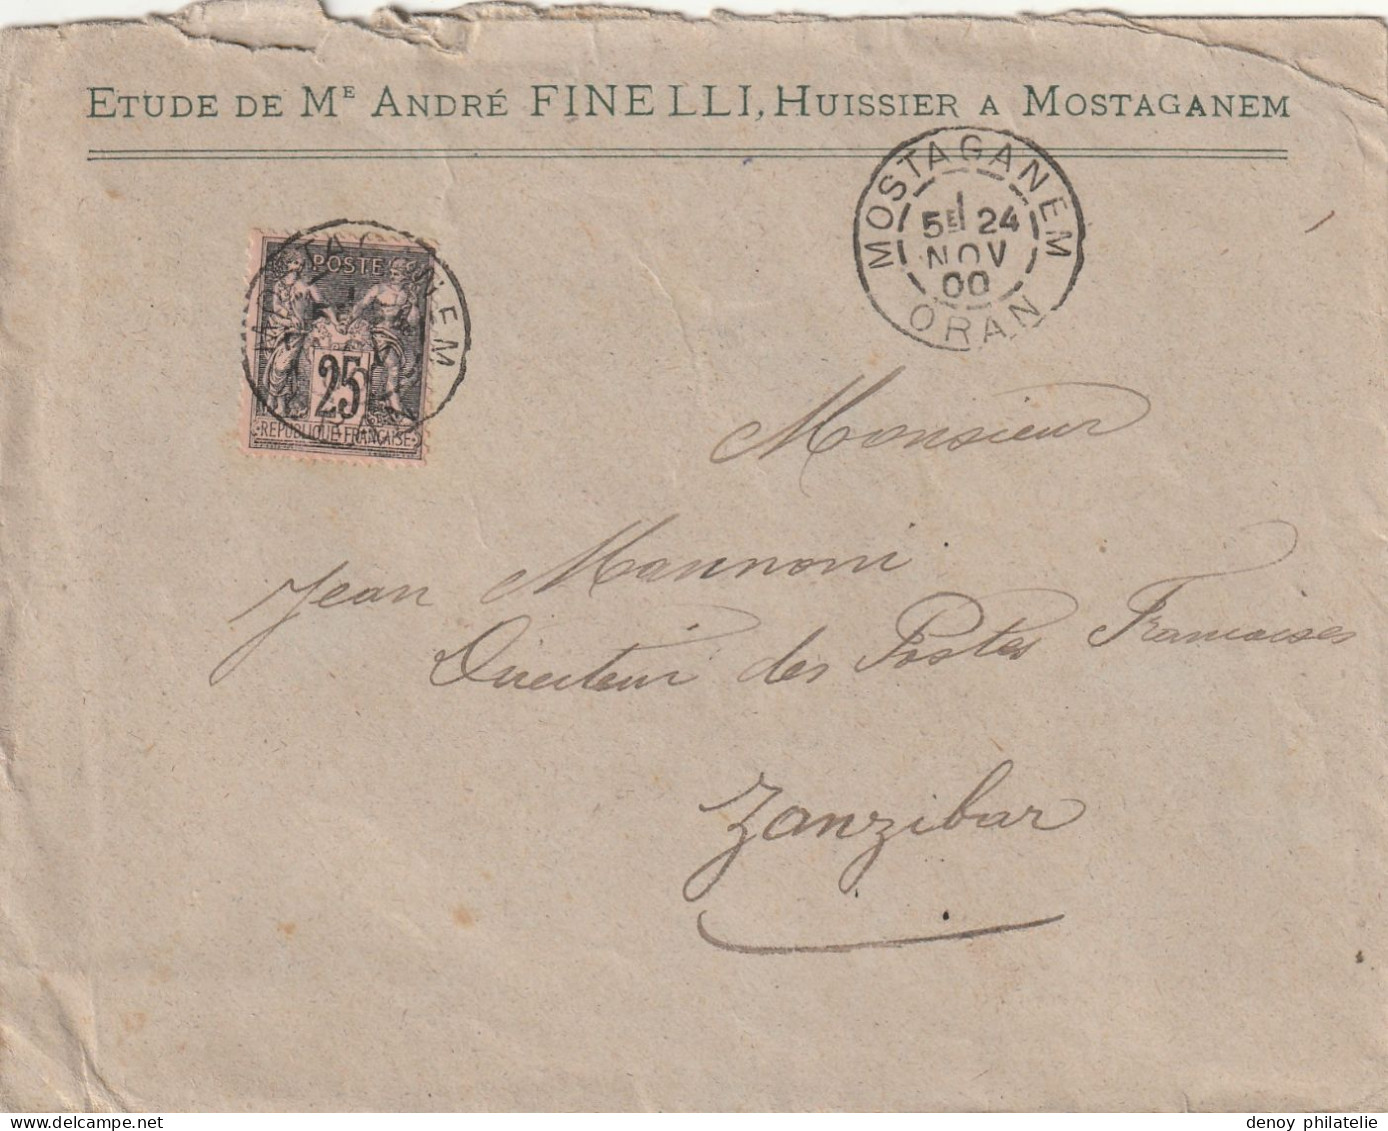 ETUDE DE Mᴱ ANDRÉ FINELLI, HUISSIER A MOSTAGANEM
MOSTAGANEM
5ᴱ 24
NOV
00
ORAN
POSTE
25
REPUBLIQUE FRANÇAISE
Monsieur
Jean Mannoni
Directeur des Postes Francaises
Zanzibar
denoy philatelie